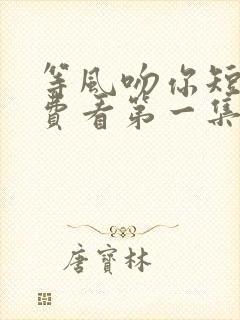 等風吻你短
費看第一集
唐寶林